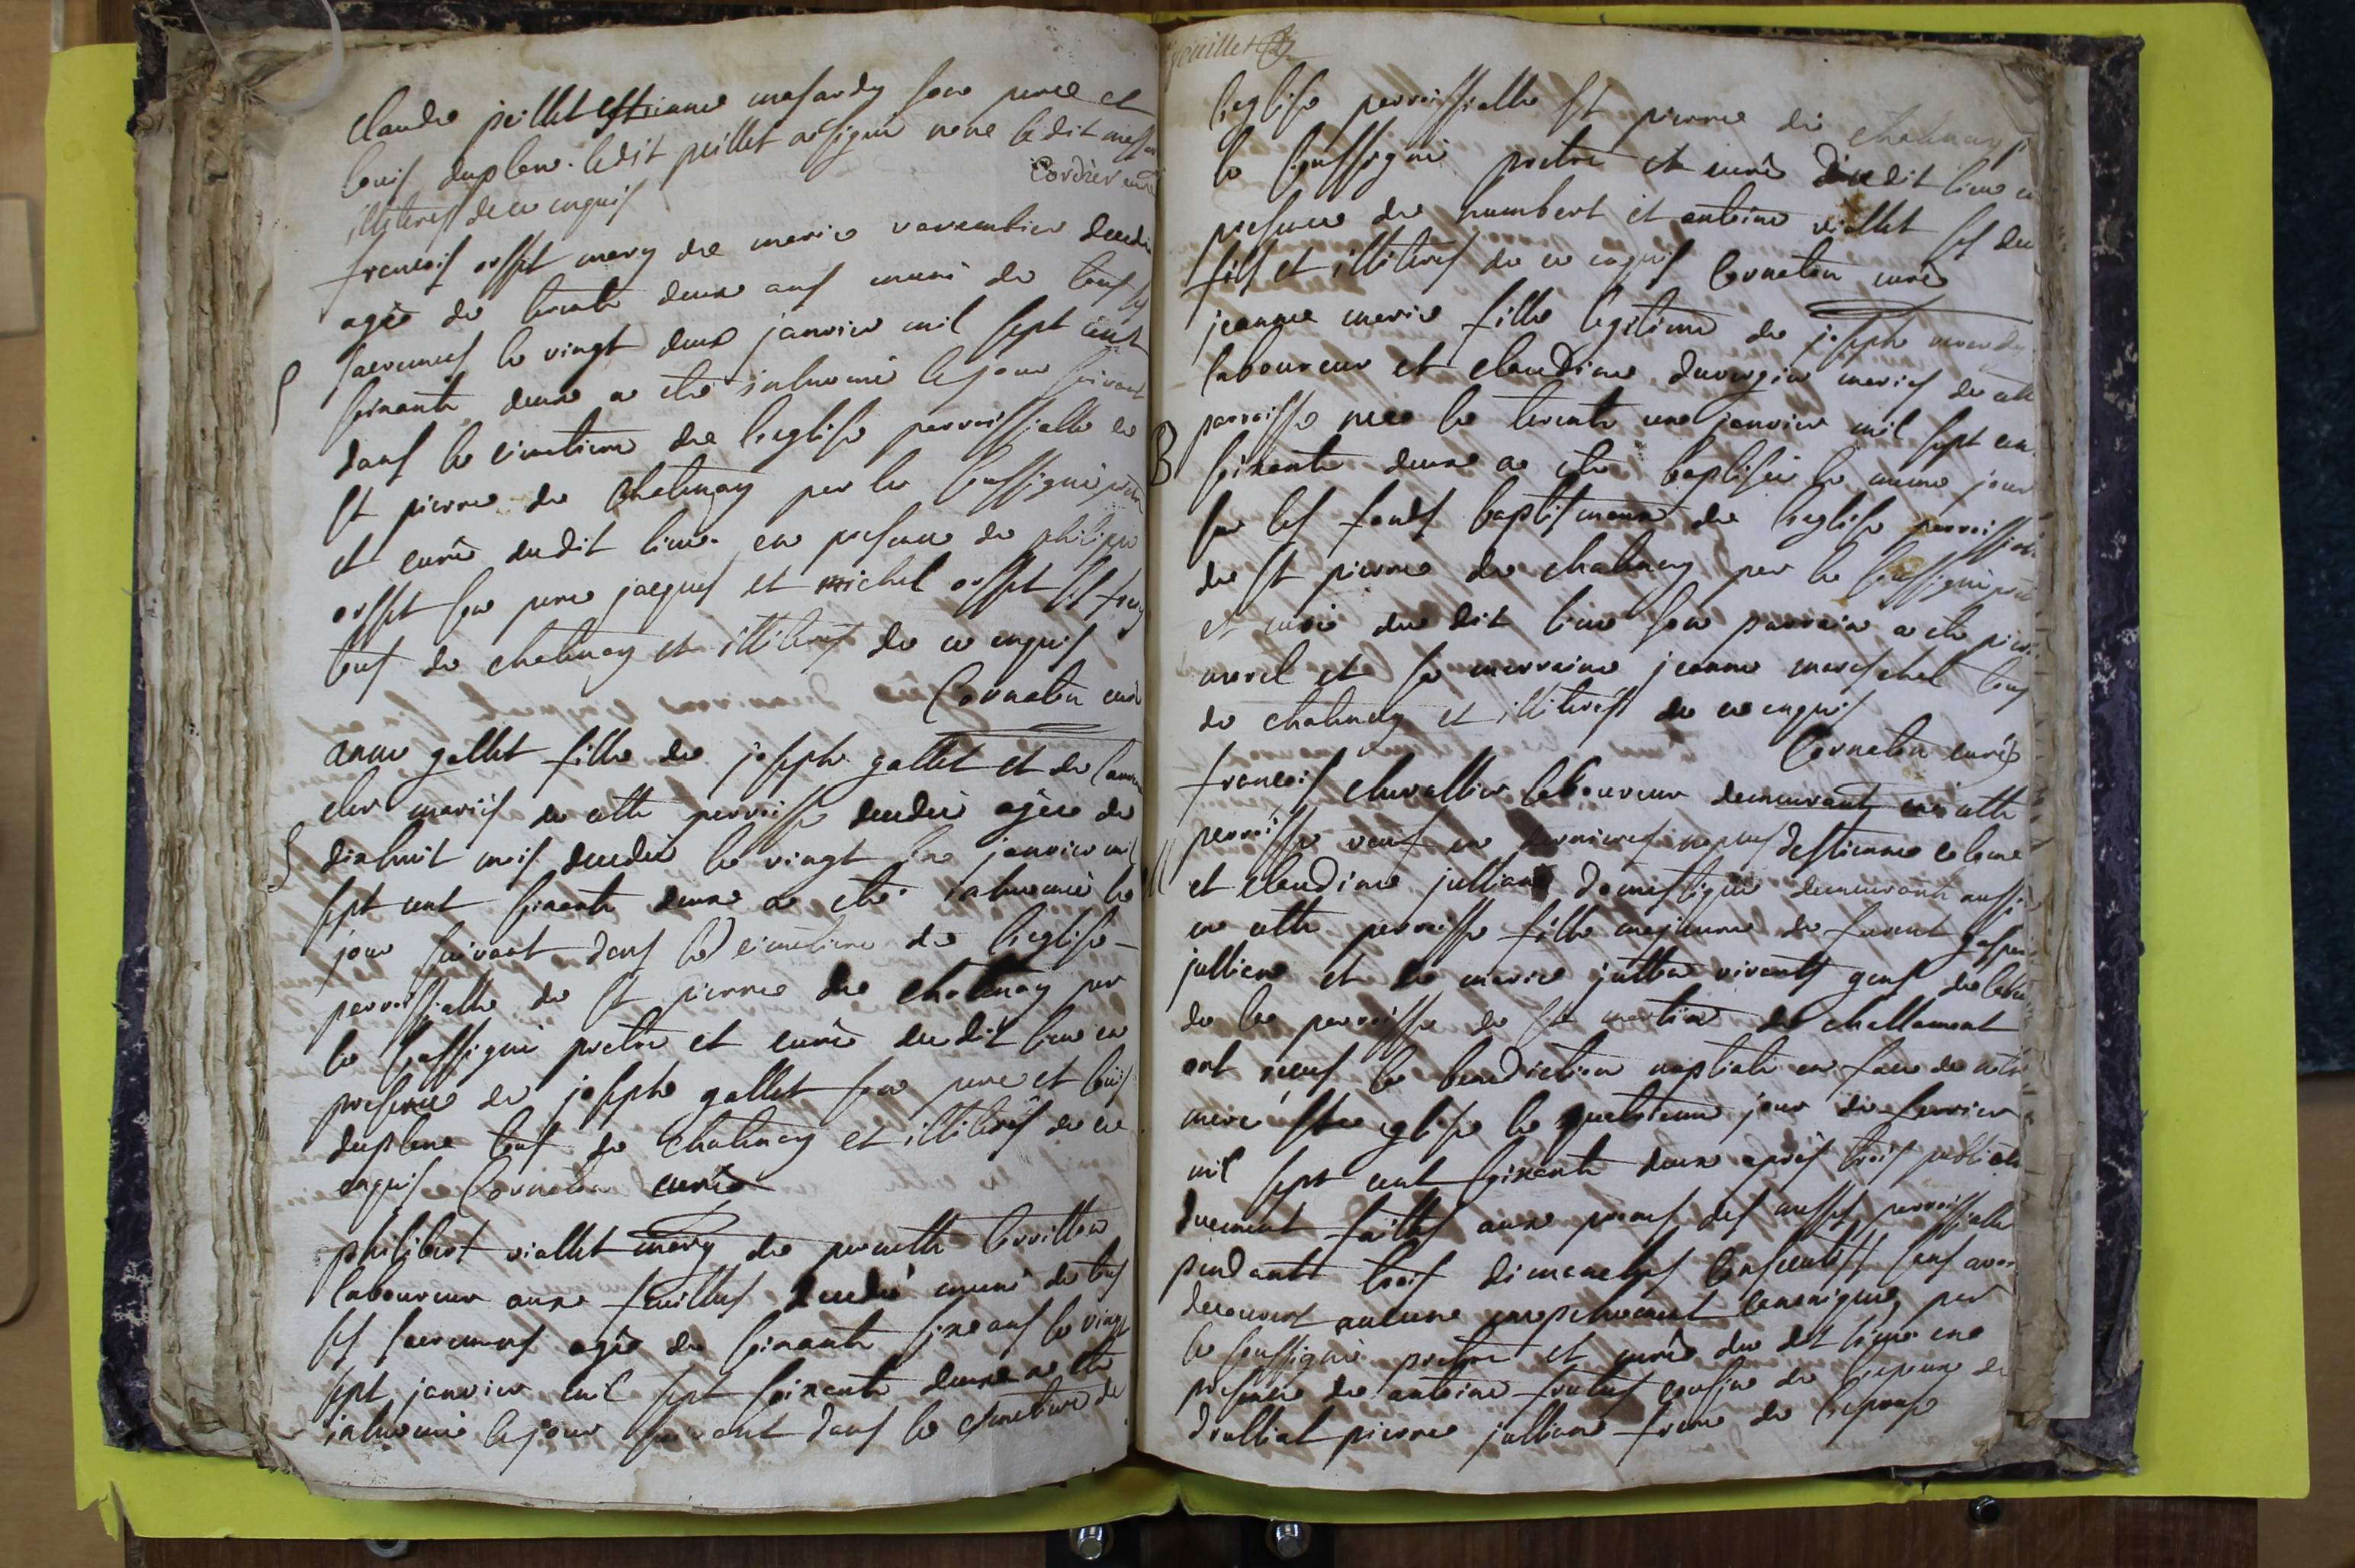 claude peillet estienne mesardy son pere et
louis duplen. ledit peillet a signé none ledit
illiteres de ce enquis
Cordier curé
francois orsset mary de marie decede
agée de trente deux ans muni de tous ses
sacremens le vingt deux janvier mil sept cent
soixante deux a eté inhumé le jour suivant
dans le cimetiere de l'eglise parroissialle de
st pierre de chatenay par le soussigné pretre
et curé dudit lieu en presence de philippe
orsset son pere jacques et michel orsset ses freres
tous de chatenay et illiteres de ce enquis
Cornaton curé
anne gallet fille de joseph gallet et de
mariés de cette parroisse decedée agée de
dixhuit mois decedée le vingt six janvier mil
sept cent soixante deux a eté inhumée le
jour suivant dans le cimetiere de l'eglise
parroissialle de st pierre de chatenay par
le soussigné pretre et curé dudit lieu en
presence de joseph gallet son pere et louis
duplene tous de chatenay et illiterés de ce
enquis Cornaton curé
philibert viallet mary de pernette
laboureur aux feuilles decedé muni de tous
ses sacremens agée de soixante six ans le vingt
sept janvier mil sept soixante deux a eté
inhumé le jour suivant dans le cimetiere de
feuillet
l'eglise parroissialle st pierre de chatenay p
le soussigné pretre et curé dudit lieu en
presence de humbert et antoine viallet ses deux
fils et illiteres de ce enquis Cornaton curé
jeanne marie fille legitime de joseph
laboureur et claudine duvergier mariés de cette
parroisse née le trente un janvier mil sept cent
B soixante deux a eté baptisée le meme jour
sur les fonds baptismaux de l'eglise parroissialle
de st pierre de chatenay par le soussigné pretre
et curé du dit lieu son parrain a eté pierre
morel et sa marraine jeanne mareschal tous
de chatenay et illiterés de ce enquis
Cornaton curé
francois chevallier laboureur demeurant en cette
parroisse veuf en dernieres nopces d'estienne
et claudine jullian domestique demeurant aussi
en cette parroisse fille majeure de furent gaspard
jullien et de marie vivants gens de
de la parroisse de st martin de chellamont
ont receus la benediction nuptiale en face de notre
mere ste eglise le quatrieme jour de fevrier
mil sept cent soixante deux après trois publications
duement faittes aux prones des messes parroissialle
pendants trois dimanches consecutifs sans avoir
decouvert aucune empechement canonique par
le soussigné pretre et curé du dit lieu en
presence de antoine cousin de l'epoux de
pierre jullian frere de l'epouse